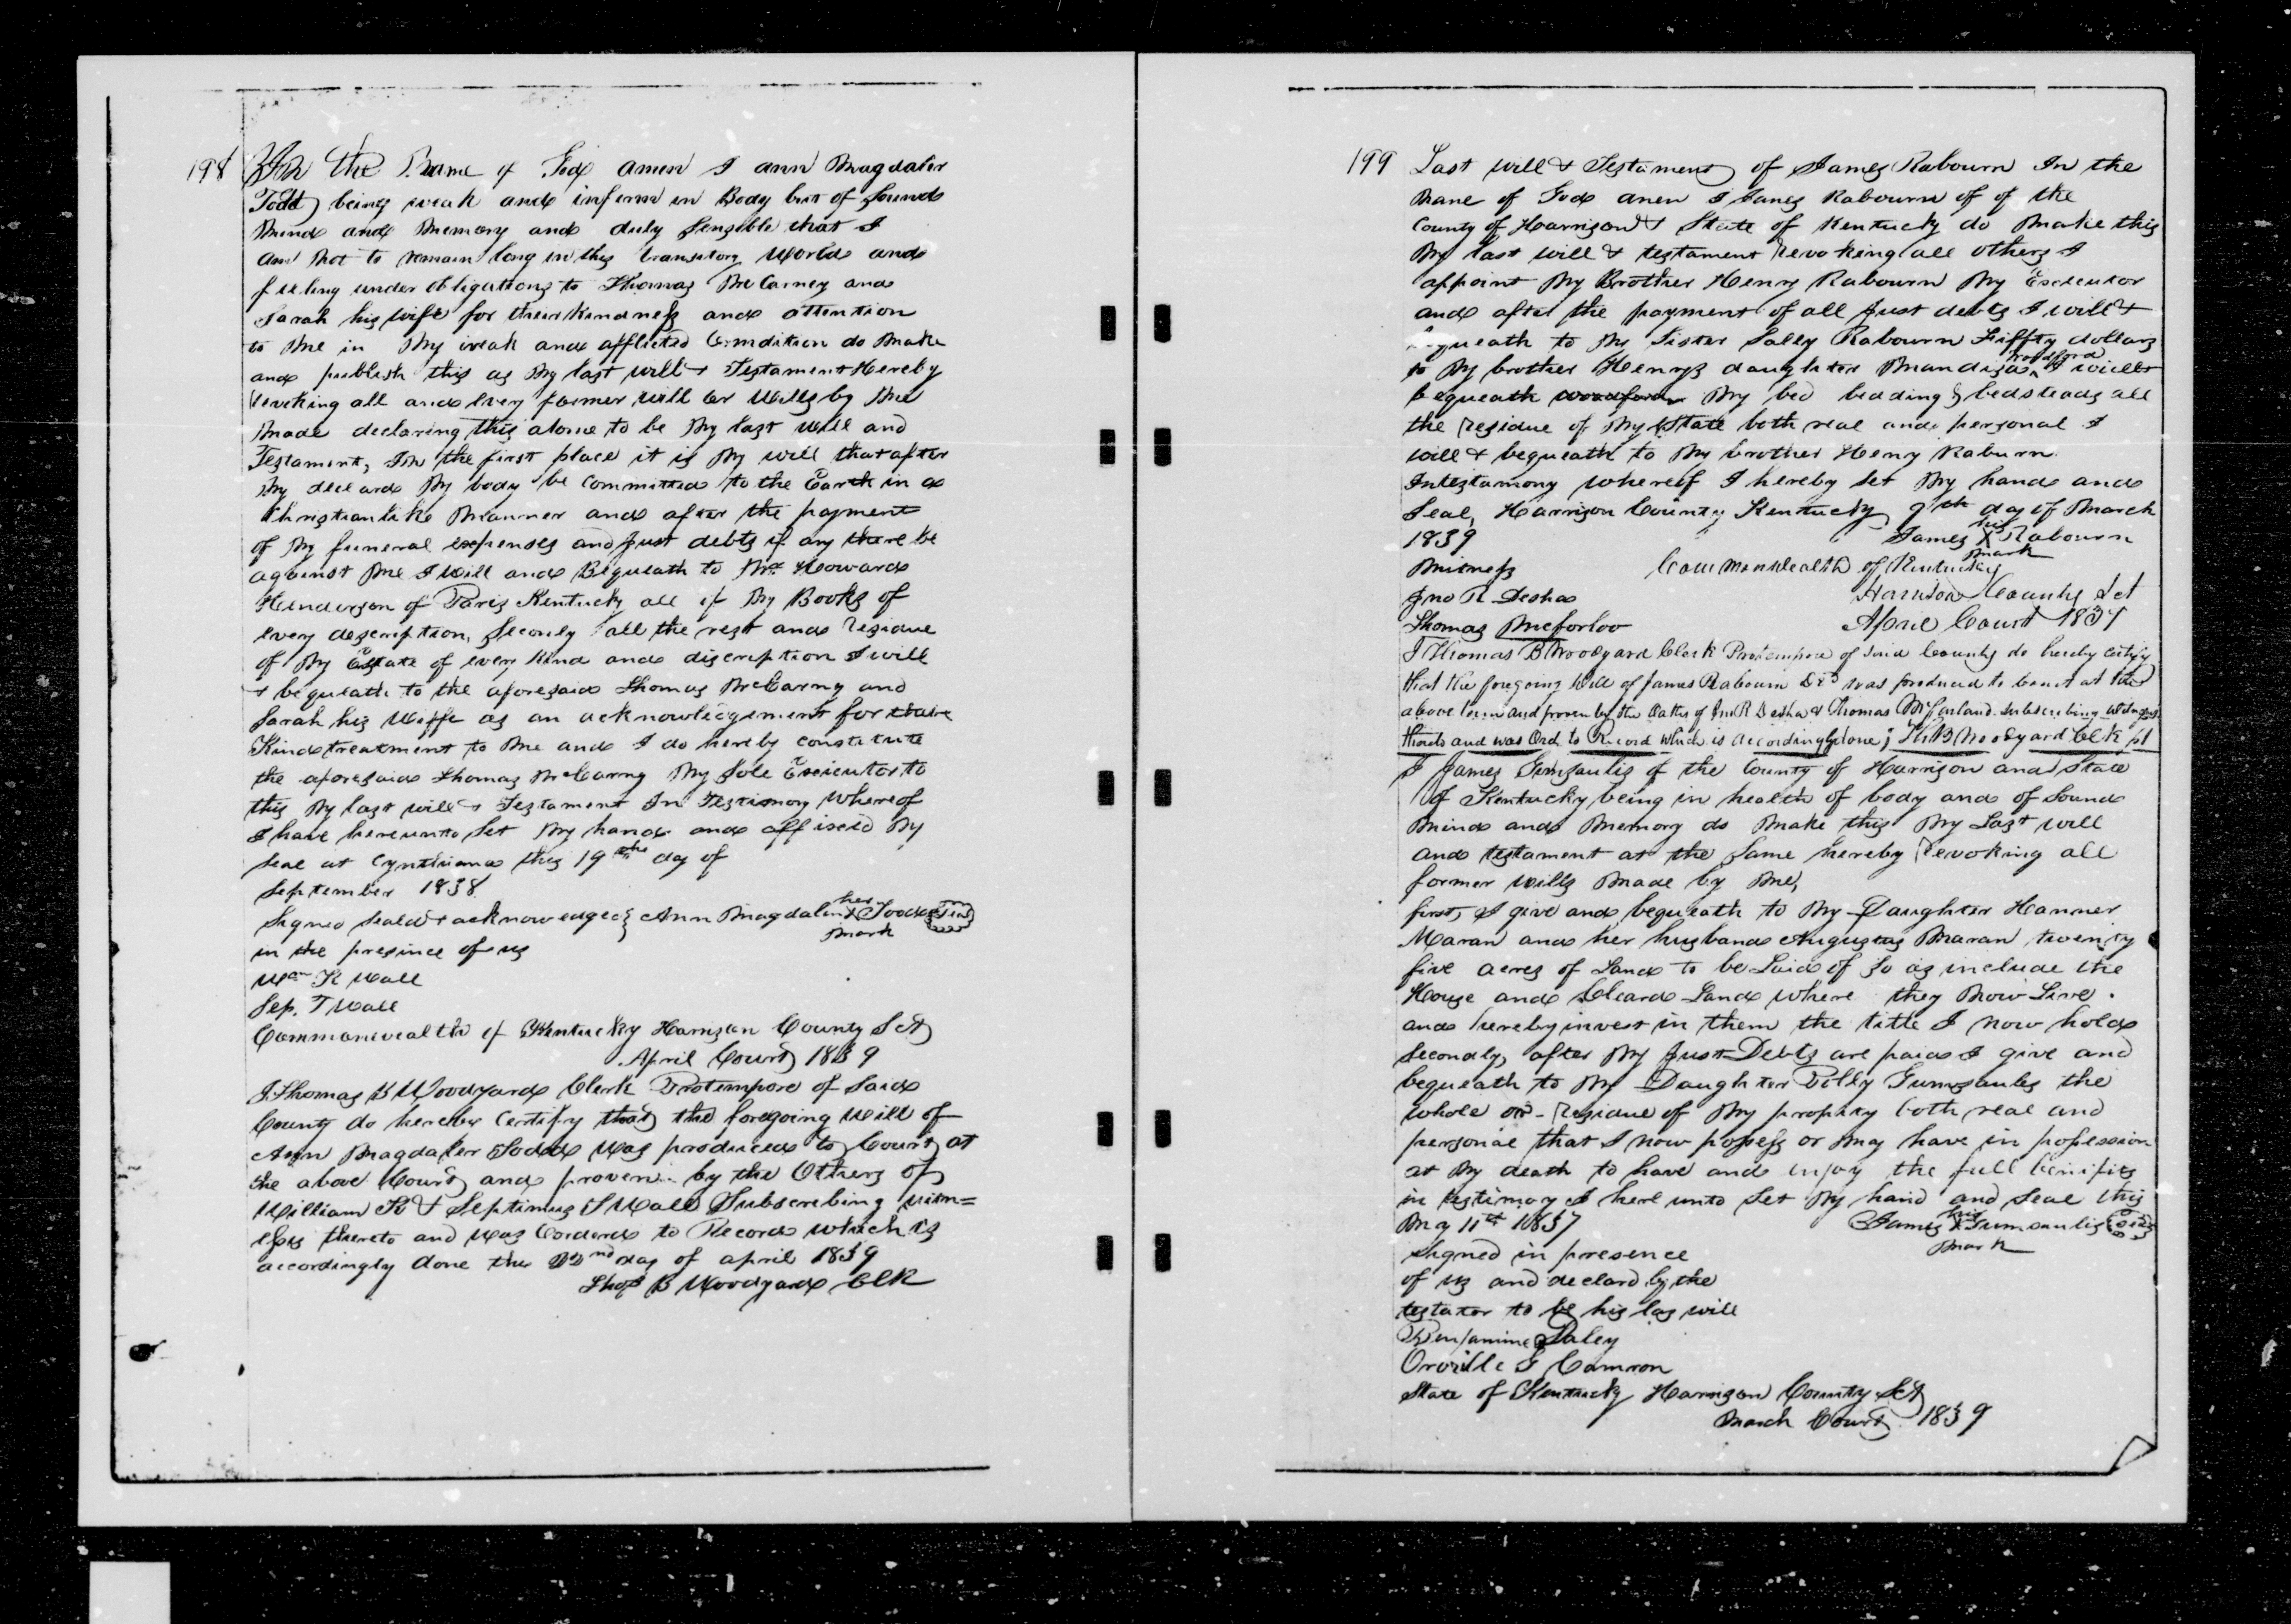 198 In the Name of God amen I ann Magdaler
Todd being weak and infirm in Body but of Sound
Mind and Memory and duly Sensible that I
am Not to remain long in this transitory World and
feeling under obligations to Thomas McCarney and
Sarah his wife for their Kindness and attention
to Me in My weak and afflicted Condition do Make
and publish this as My last will & Testament Hereby
revoking all and every former will or Wills by Me
Made declaring this alone to be My last Will and
Testament, In the first place it is My will that after
My deceard My body be Committed to the Earth in a
Christianlike Manner and after the payment
of My funeral expenses and Just debts if any there be
against Me I Will and Bequeath to Howard
Henderson of Paris Kentucky all of My Books of
every description, Seconly all the rest and residue
of My Estate of every Kind and discription I will
& bequeath to the aforesaid Thomas McCarny and
Sarah his Wiffe as an acknowledgement for
Kind treatment to Me and I do hereby constitute
the aforesaid Thomas McCarny My Sole Executor to
this My last will & Testament In Testimony Whereof
I have hereunto Set My hand and affixed My
Seal at Cynthiana this 19th day of
September 1838
Signed Seald & acknowedged } Ann Magdalen her X mark Todd
in the presince of us
Wm K Wall
Sep. T Wall
Commonwealth of Kentucky Harrison County Sct
April Court 1839
I Thomas B Woodyard Clerk Protempore of Said
County do hereby Certify that the foregoing Will of
Ann Magdaler Todd Was produced to Court at
the above Court and proven by the Othes of
William K & Septimus T Wall Subscribing witn=
ess thereto and Was Corderd to Record which is
accordingly done the 22nd day of april 1839
Thos B Woodyard Clk
199 Last Will & Testament of James Rabourn In the
Name of God amen I James Rabourn of of the
County of Harrison & State of Kentucky do Make this
My last will & testament revoking all others I
appoint My Brother Henry Rabourn My Executor
and after the payment of all Just debts I will &
bequeath to My Sister Sally Rabourn Fiffty dollars
to My brother Henrys daughter woodford I will &
bequeath woodford My bed bedding & bedsteads all
the residue of My Estate both real and personal I
will & bequeath to My brother Henry Raburn.
Intestamony whereof I hereby Set My hand and
Seal, Harrison County Kentucky 9th day of March
1839 James his X mark Rabourn
Witness Commonwealth of Kentucky
Jno R Desha Harrison County Sct
Thomas April Court 1839
I Thomas B Woodyard Clerk Protempore of Said County do hereby certify
that the foregoing Will of James Rabourn Decd was produced to Court at the
above term and proven by the Oaths of Jno R Desha & Thomas McFarland Subscribing witnesses
thereto and was Ord to Record which is accordingly done; Th B Woodyard Clk pt
I James of the County of Harrison and State
of Kentucky being in health of body and of Sound
Mind and Memory do Make this My Last will
and testament at the Same hereby revoking all
former wills Made by Me,
first, I give and bequeath to My Daughter Hanner
Maran and her husband Augustus Maran twenty
five acres of Land to be Laid of So as include the
House and Cleard Land Where they Now Live.
and hereby invest in them the title I now hold
Secondly, after My Just Debts are paid I give and
bequeath to My Daughter Polly the
whole or residue of My propirty both real and
personal that I now possess or May have in possession
at My death to have and enjoy the full benifits
in testimoy I here unto Set My hand and Seal this
May 11th 1837 James his X mark
Signed in presence
of us and declard by the
testator to be his las will
Benjamine
Orville G Camron
State of Kentucky Harrison County Sct
March Court 1839